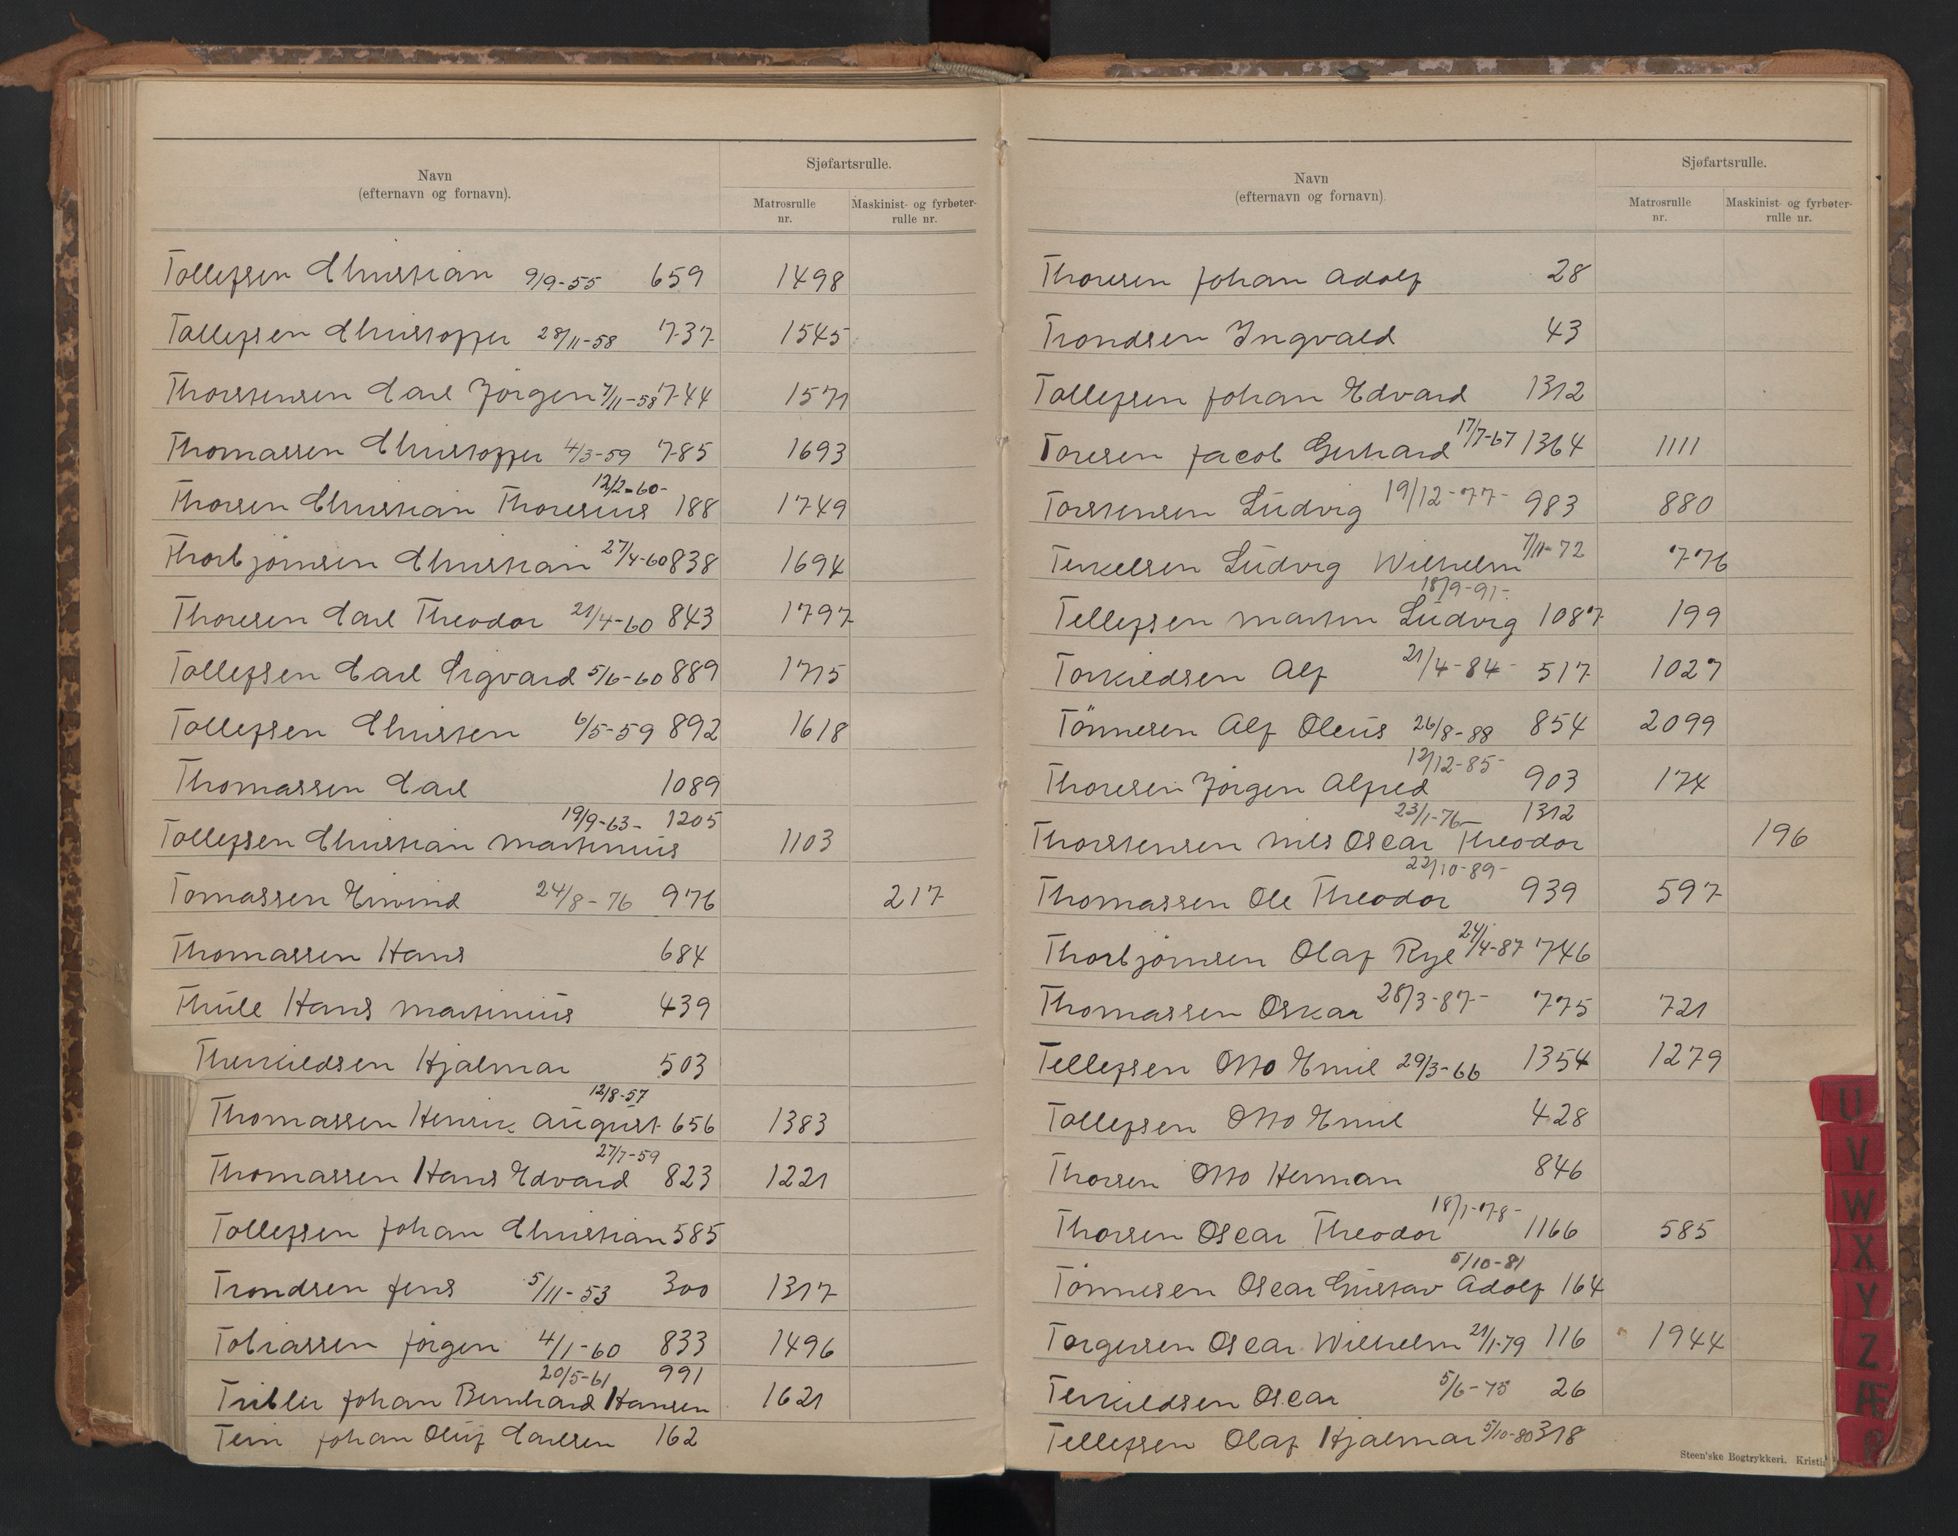 Navn
(efternavn og fornavn).
Sjøfartsrulle.
Matrosrulle nr.
Maskinist- og fyrbøter-rulle nr.
Tollefsen Christian 9/9-55 659 1498
Tollefsen Christoffer 28/11-58 737 1545
Thorstensen Carl Jörgen 7/11-58 744 1571
Thomassen Christoffer 4/3-59 785 1693
Thorsen Christian Thoresius 12/2-60- 188 1749
Thorbjörnsen Christian 27/4-60 838 1694
Thoresen Carl Theodor 21/4-60 843 1797
Tollefsen Carl Sigvard 5/6-60 889 1715
Tollefsen Christen 6/5-59 892 1618
Thomassen Carl 1089
Tollefsen Christian Martinius 19/9-63- 1205 1103
Tomassen Eivind 24/8-76 976 217
Thomassen Hans 684
Thüle Hans Martinius 439
Therkildsen Hjalmar 503
Thomassen Henrik August 12/8-57 656 1383
Thomassen Hans Edvard 27/7-59 823 1221
Tollefsen Johan Christian 585
Trondsen Jens 5/11-53 300 1317
Tobiassen Jörgen 4/1-60 833 1496
Tribler Johan Bernhard Hansen 20/5-61 991 1621
Johan Oluf Carlsen 162
Navn
(efternavn og fornavn).
Sjøfartsrulle.
Matrosrulle nr.
Maskinist- og fyrbøter-rulle nr.
Thoresen Johan Adolf 28
Trondsen Ingvald 43
Tollefsen Johan Edvard 1312
Toresen Jacob Gerhard 17/7-67 1364 1111
Torstensen Ludvig 19/12-77- 983 880
Terkelsen Ludvig Wilhelm 7/11-72 776
Tellefsen Martin Ludvig 18/9-91- 1087 199
Torkildsen Alf 21/4-84- 517 1027
Tönnesen Alf Oleus 26/8-88 854 2099
Thoresen Jörgen Alfred 12/12-85- 903 174
Thorstensen Nils Oscar Theodor 23/1-76- 1312 196
Thomassen Ole Theodor 22/10-89- 939 597
Thorbjörnsen Olaf Rye 24/4-87 746
Thomassen Oskar 28/3-87- 775 721
Tellefsen Otto Emil 29/3-66 1354 1279
Tollefsen Otto Emil 428
Thorsen Otto Herman 846
Thorsen Oscar Theodor 18/1-78- 1166 585
Tönnesen Oscar Gustav Adolf 5/10-81 164
Torgersen Oscar Wilhelm 21/1-79 116 1944
Terkildsen Oscar 5/6-75 26
Tellefsen Olaf Hjalmar 5/10-80 318
Steen'ske Bogtrykkeri. Kristi
U
V
W
X
Y
Z
Æ